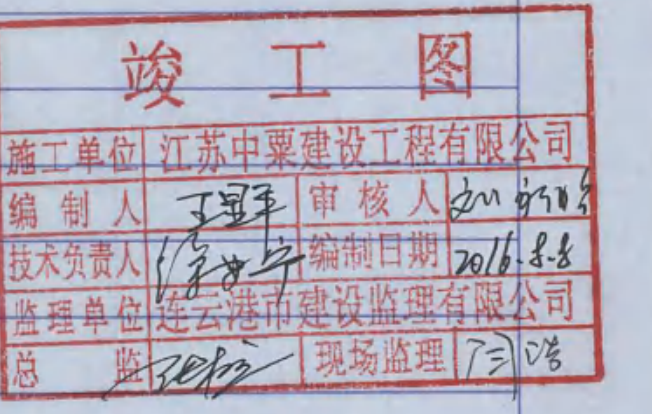 竣工图
施工单位 江苏中粟建设工程有限公司
编制人 王显平 审核人 刘
技术负责人 编制日期 2016.8.8
监理单位 连云港市建设监理有限公司
总监 现场监理 闫浩